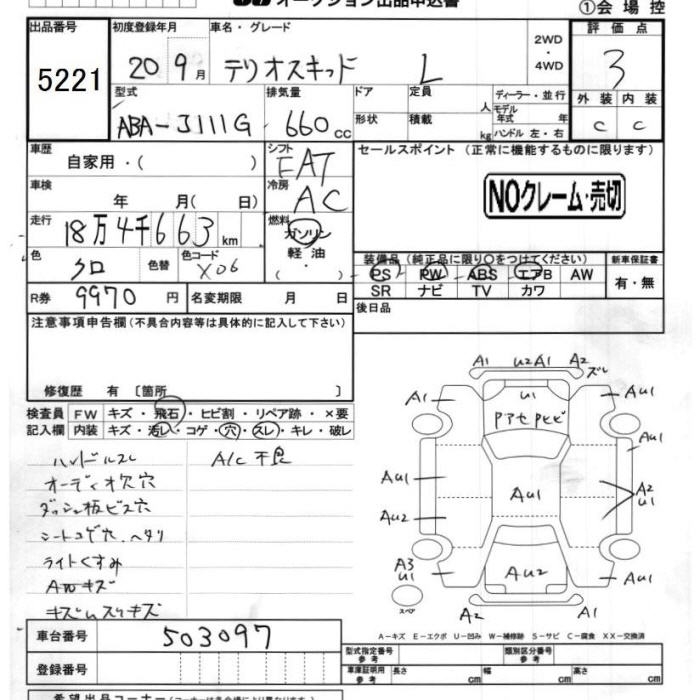 オークション出品申込書
①会場控
出品番号 初度登録年月 車名・グレード 2WD・4WD 評価点
5221 20 9月 テリオスキッド L 3
型式 排気量 ドア 定員 人 ディーラー・並行 外装 内装
ABA-J111G 660cc 形状 積載 kg モデル年式 年 ハンドル 左・右 C C
車歴 自家用・( ) シフト FAT セールスポイント (正常に機能するものに限ります)
車検 年 月( 日) 冷房 AC NOクレーム・売切
走行 18万4千663km 燃料 ガソリン・軽油・( )
色 クロ 色替 色コード X06
装備品 (純正品に限り○をつけてください) 新車保証書
PS PW ABS エアB AW 有・無
SR ナビ TV カワ
R券 9970円 名変期限 月 日 後日品
注意事項申告欄 (不具合内容等は具体的に記入して下さい)
修復歴 有 [箇所 ]
検査員記入欄 FW キズ・飛石・ヒビ割・リペア跡・×要
内装 キズ・汚レ・コゲ・穴・スレ・キレ・破レ
ハンドルスレ A/C不良
オーディオ欠穴
ダッシュ板ビス穴
シートコゲ穴、ヘタリ
ライトくすみ
AWキズ
A1 U2A1 A2 ズレ
A1 U1 AU1
AU1
AU1 AU1 A2 U1
AU2
A3 U1 AU2
スペア A2 A1
A-キズ E-エクボ U-凹み W-補修跡 S-サビ C-腐食 XX-交換済
車台番号 503097
型式指定番号 参考 類別区分番号 参考
登録番号 車庫証明用 参考 長さ cm 幅 cm 高さ cm
希望出品コーナー